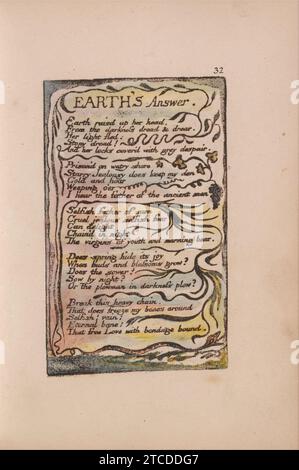 32
EARTH'S Answer.
Earth rais'd up her head,
From the darkness dread & drear.
Her light fled:
Stony dread!
And her locks cover'd with grey despair.
Prison'd on watry shore
Starry Jealousy does keep my den
Cold and hoar
Weeping o'er
I hear the father of the ancient men
Selfish father of men
Cruel jealous selfish fear
Can delight
Chain'd in night
The virgins of youth and morning bear.
Does spring hide its joy
When buds and blossoms grow?
Does the sower?
Sow by night?
Or the plowman in darkness plow?
Break this heavy chain.
That does freeze my bones around
Selfish! vain!
Eternal bane!
That free Love with bondage bound.
alamy
Image ID: 2TCDDG7
www.alamy.com